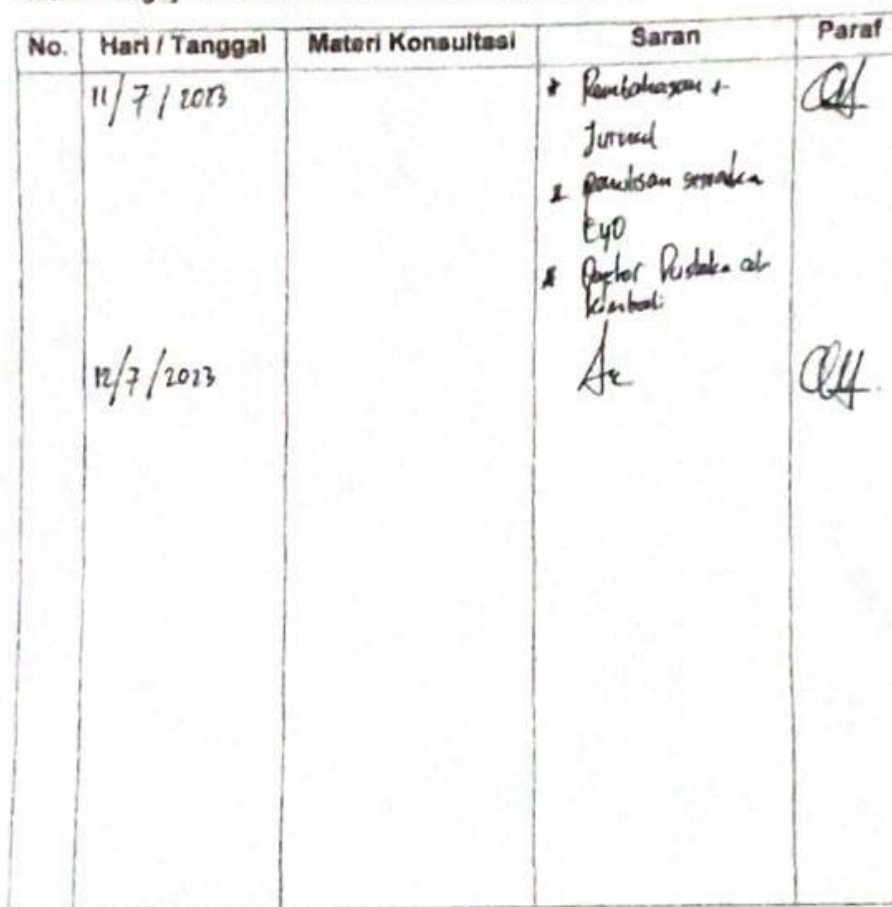 No. Hari / Tanggal Materi Konsultasi Saran Paraf
11/7/2023 * Pembahasan +
Jurnal
* penulisan sesuaikan
EyD
* Daftar Pustaka cek
kembali
12/7/2023 Acc